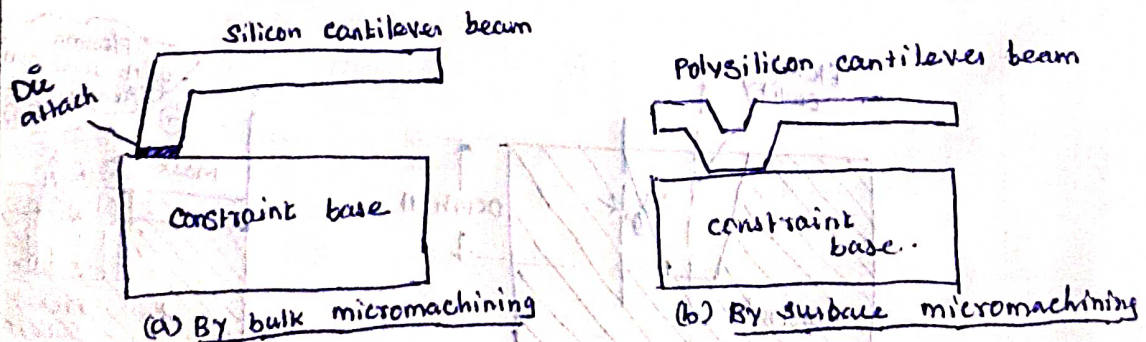 Silicon cantilever beam
Die
attach
constraint base
(a) By bulk micromachining
Polysilicon cantilever beam
constraint
base..
(b) By surface micromachining